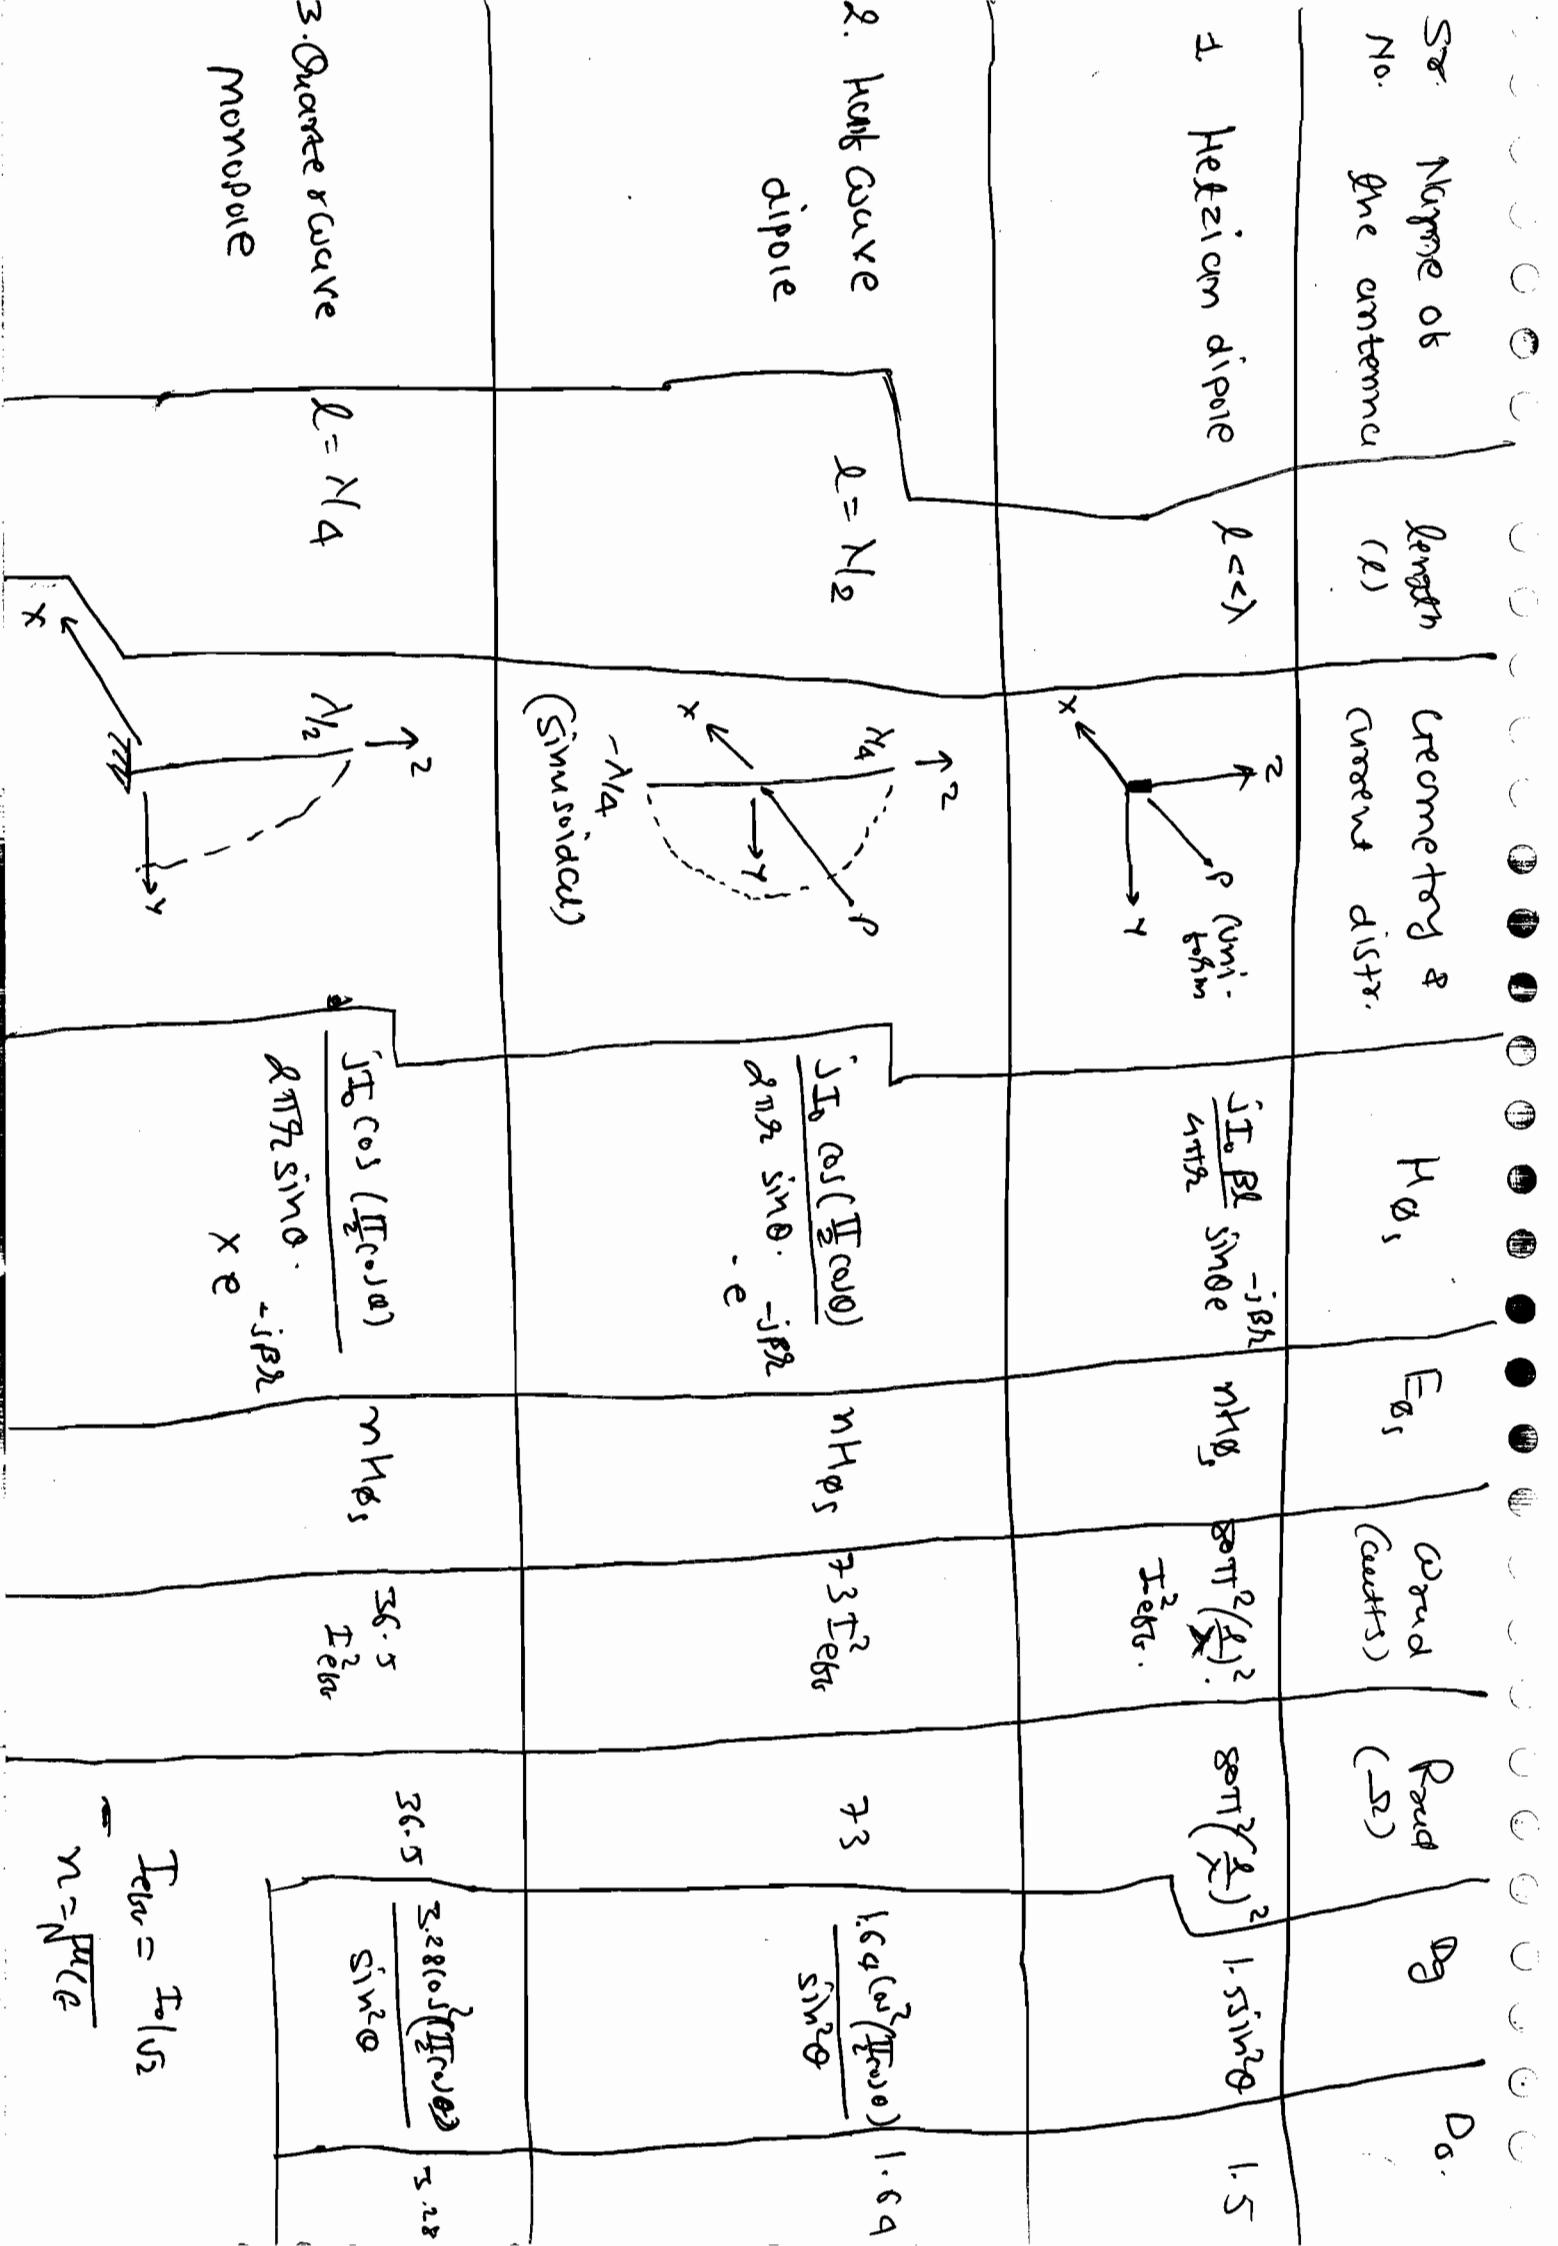 Sr. No.
Name of the antenna
length (l)
Geometry & current distr.
Hϕs
Eϕs
Wrad (watts)
Rrad (Ω)
Dg
Do.
1 Hetzian dipole
l<<λ
Z
X
Y
P (uniform
jI₀βl/4πr sinθe^-jβr
ηHϕs
80π²(l/λ)². I²eff.
80π²(l/λ)²
1.5sin²θ
1.5
2. Half wave dipole
l = λ/2
Z
λ/4
X
Y
P
-λ/4
(Sinusoidal)
jI₀ cos(π/2 cosθ)/2πr sinθ. . e^-jβr
ηHϕs
73I²eff
73
1.64cos²(π/2 cosθ)/sin²θ
1.64
3. Quarter wave monopole
l = λ/4
Z
λ/2
X
Y
jI₀ cos(π/2 cosθ)/2πr sinθ. x e^-jβr
ηHϕs
36.5 I²eff
36.5
3.28cos²(π/2 cosθ)/sin²θ
3.28
- Ieff = I₀/√2
η = √μ/ε